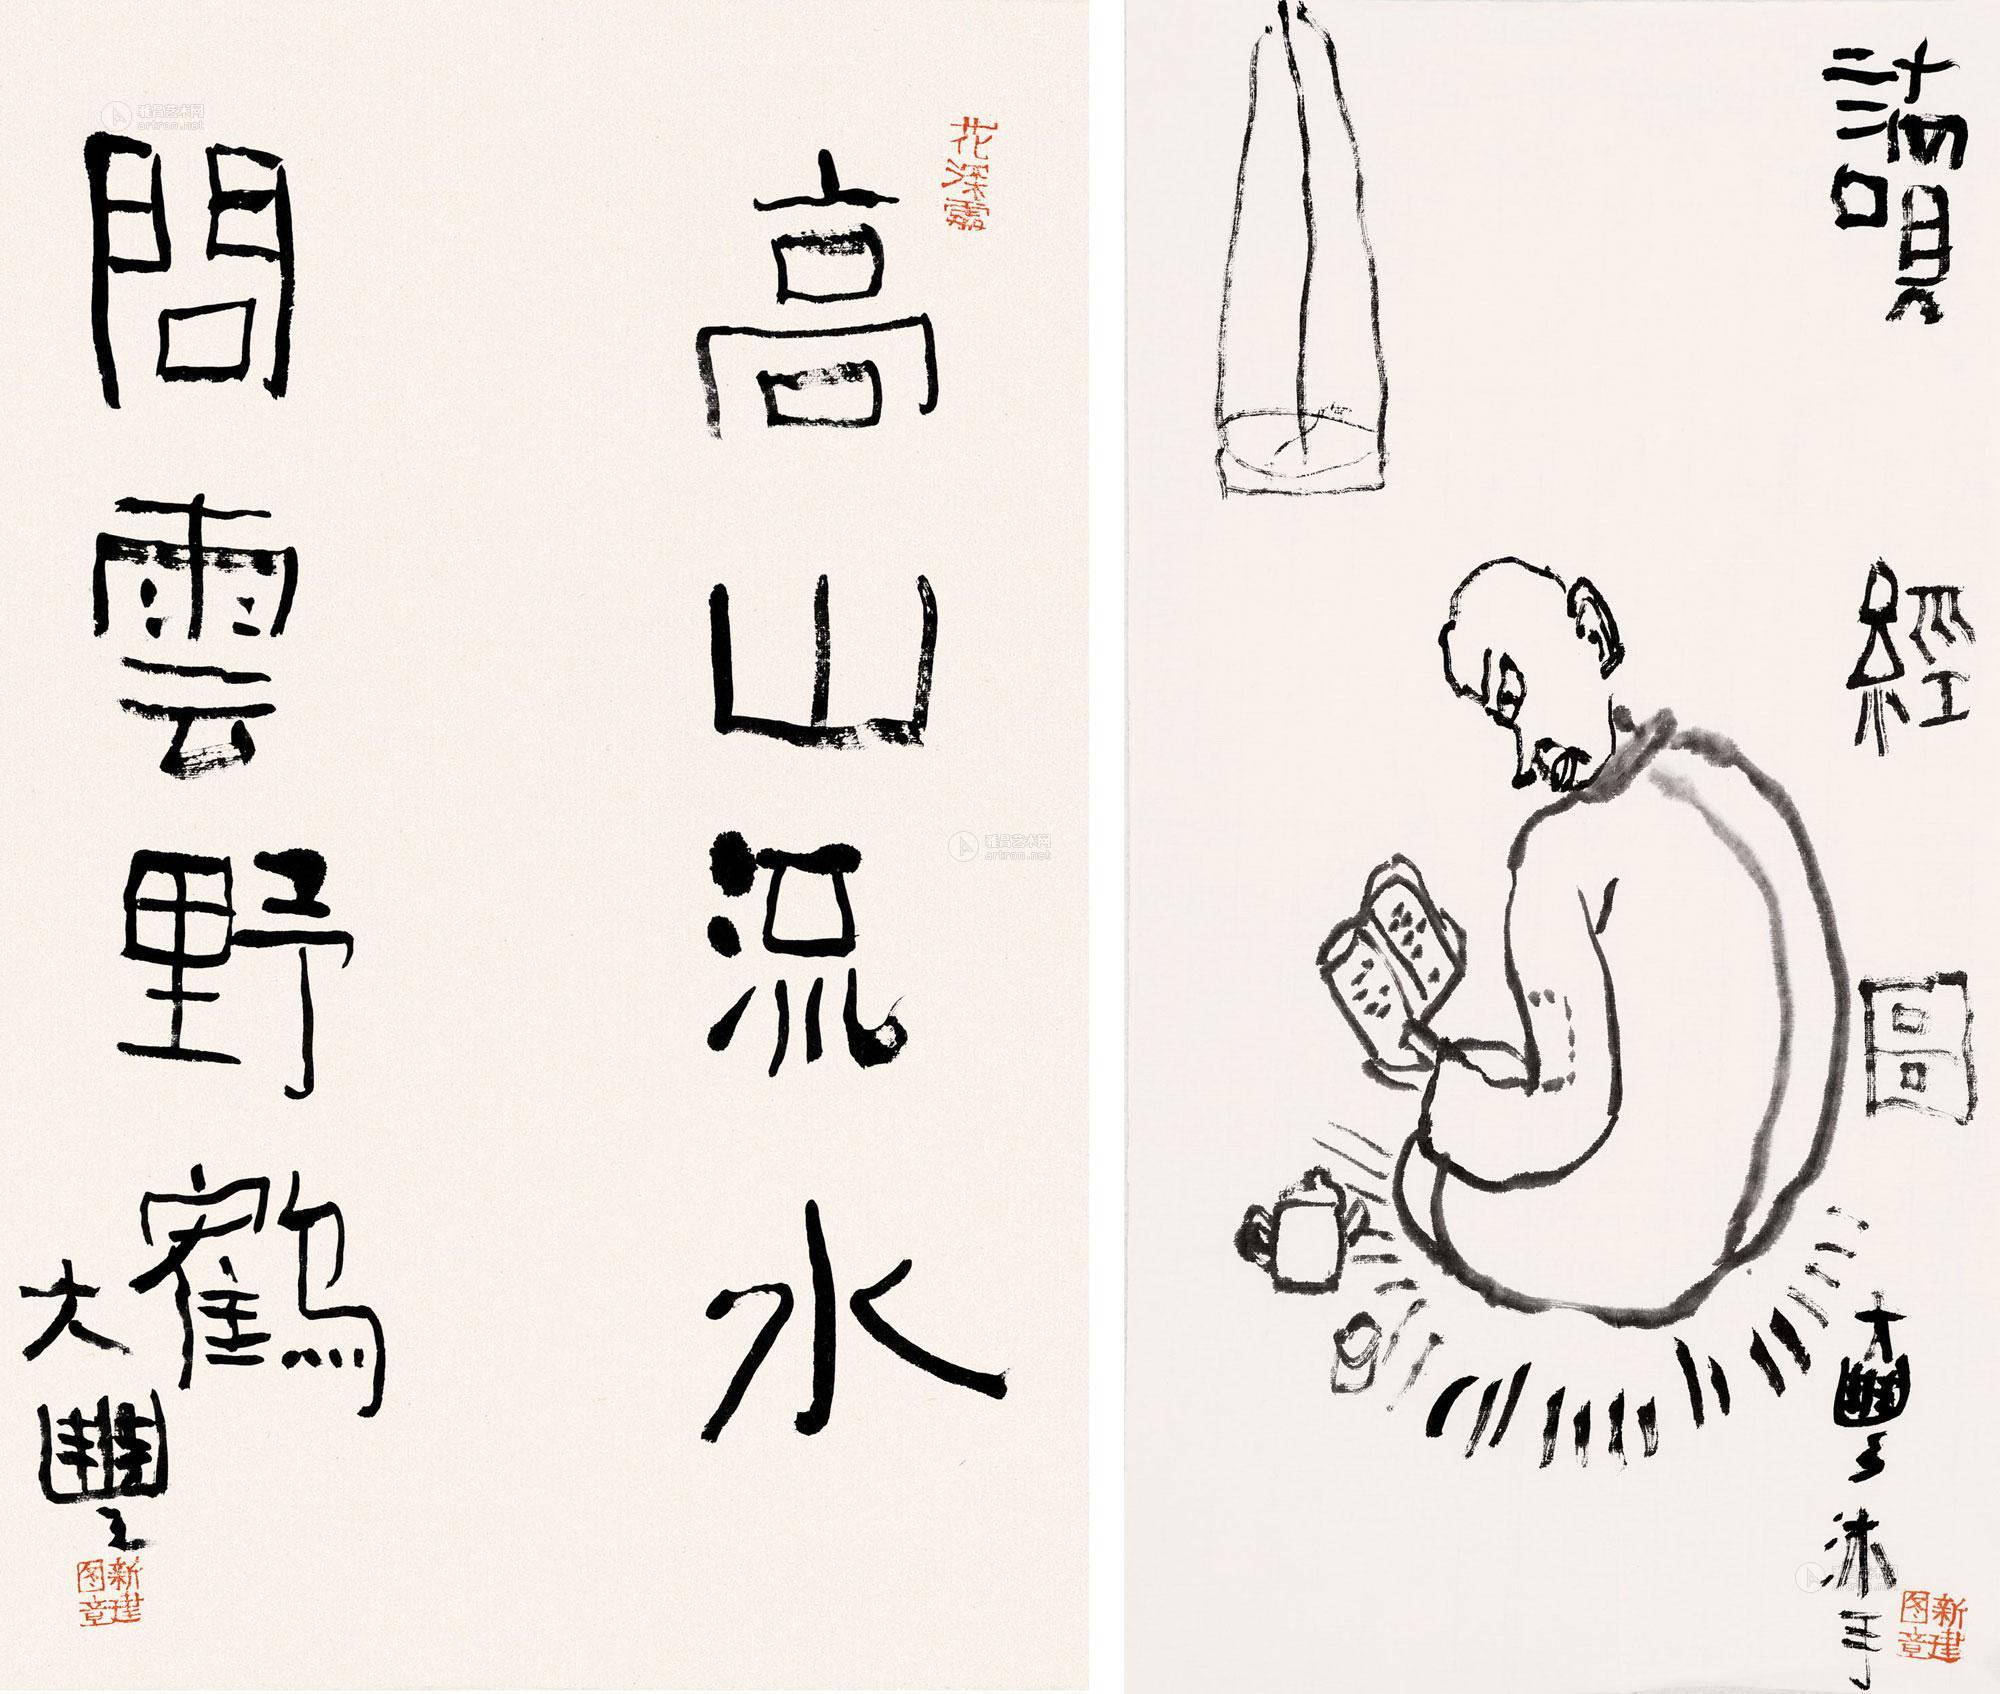 花深
高山流水
問雲野鶴
大豐
新建
图章
讀經圖
大豐沐手
新建
图章
雅昌艺术网
artron.net
雅昌艺术网
artron.net